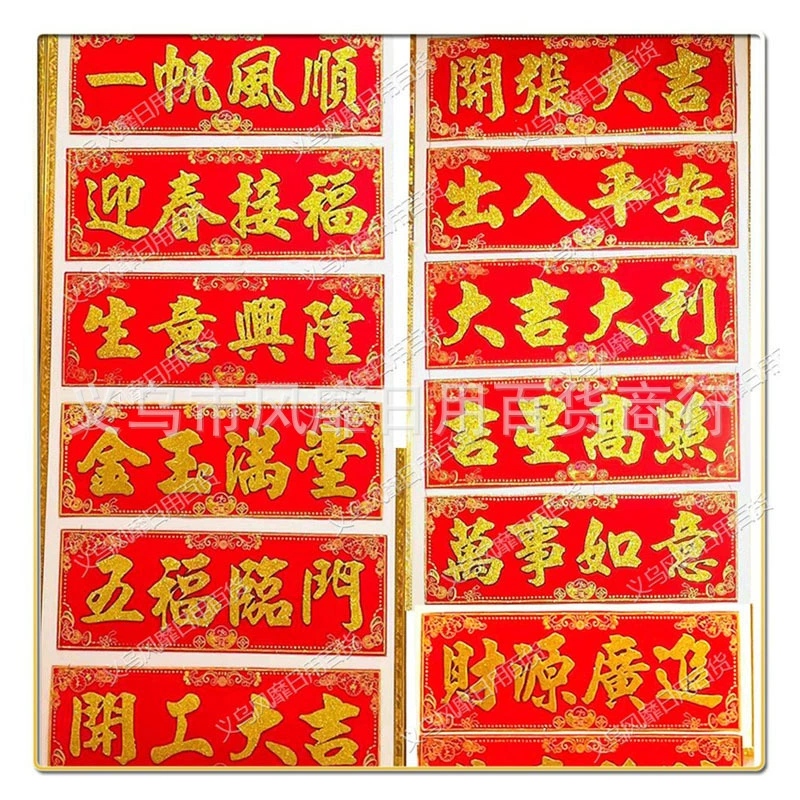 一帆風順
迎春接福
生意興隆
金玉滿堂
五福臨門
開工大吉
開張大吉
出入平安
大吉大利
吉星高照
萬事如意
財源廣進
义乌市风靡日用百货商行